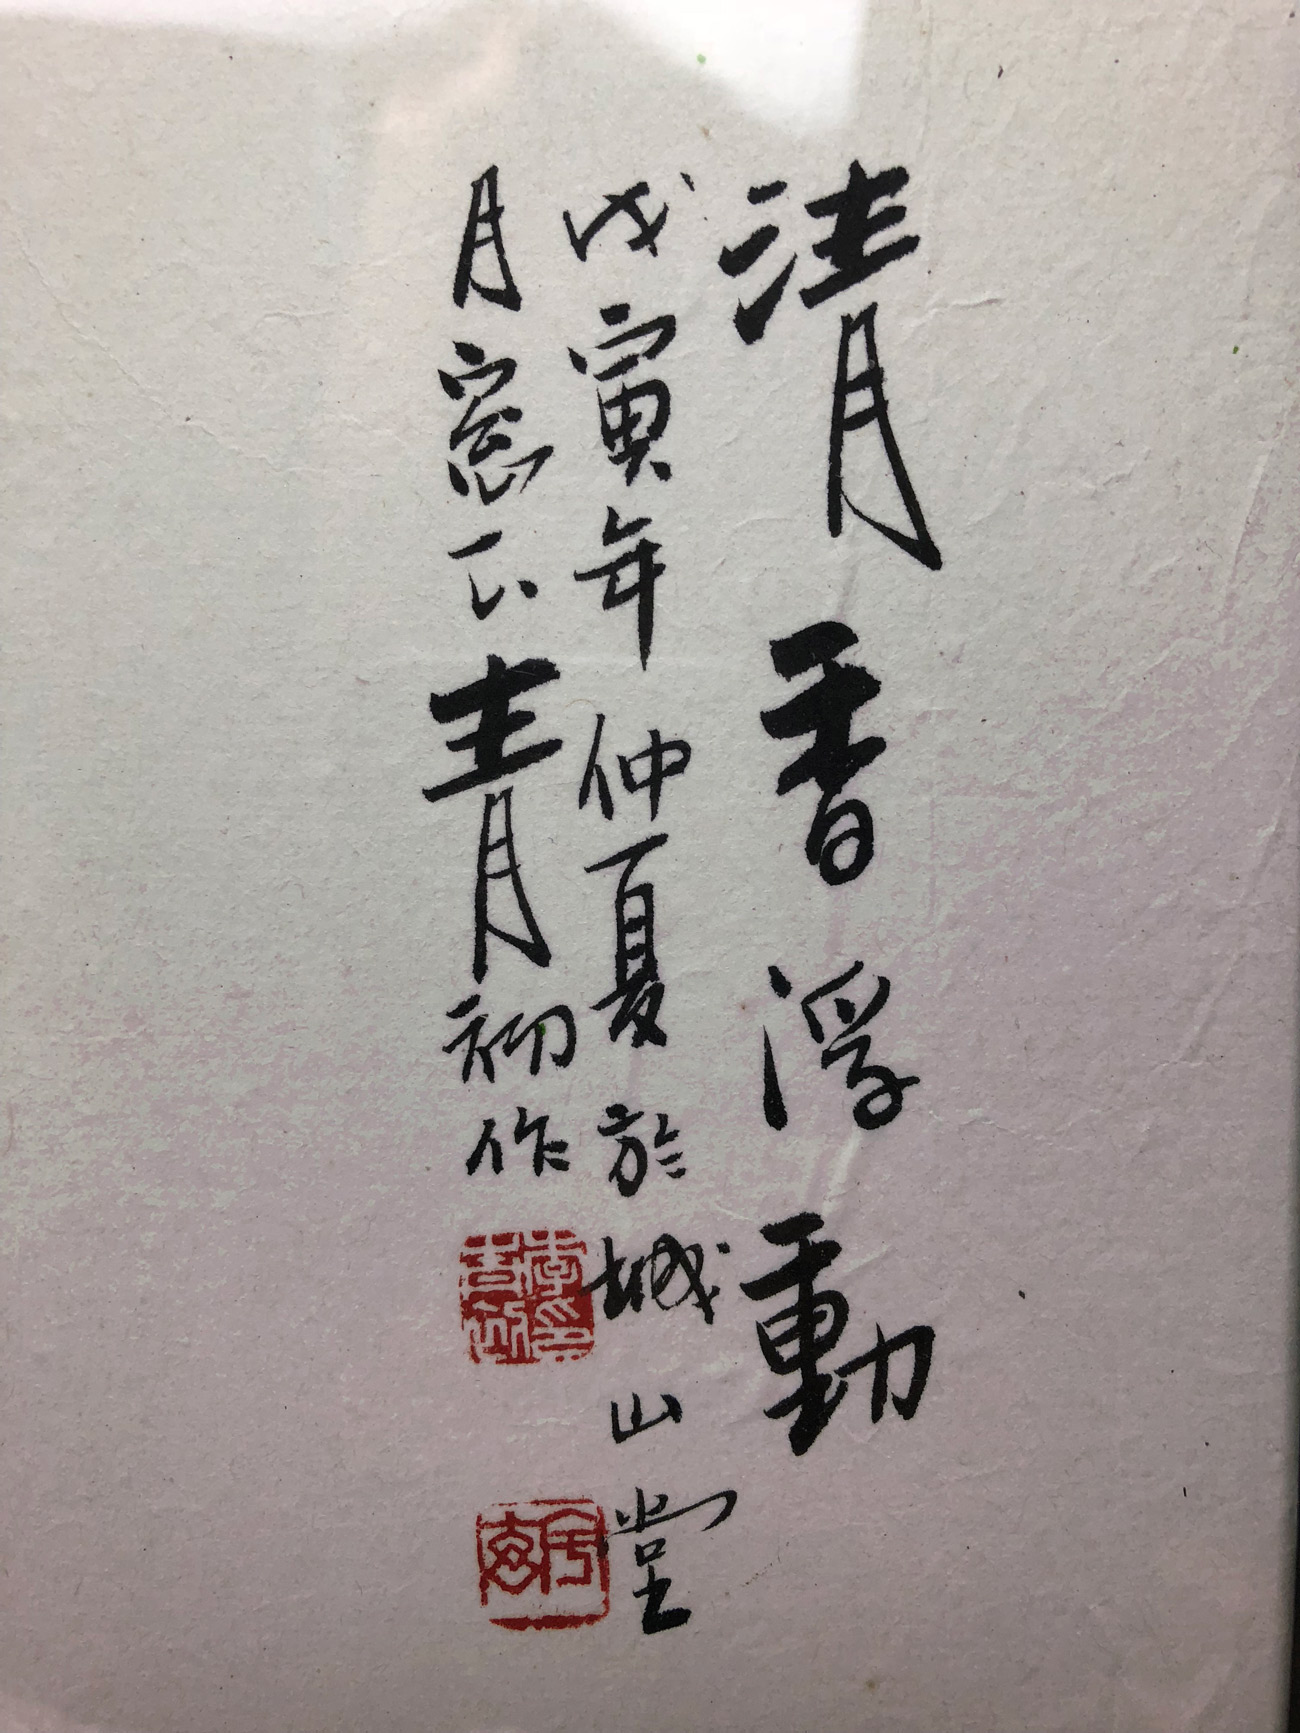 清香浮動
戊寅年仲夏於城山堂
月窓下青初作